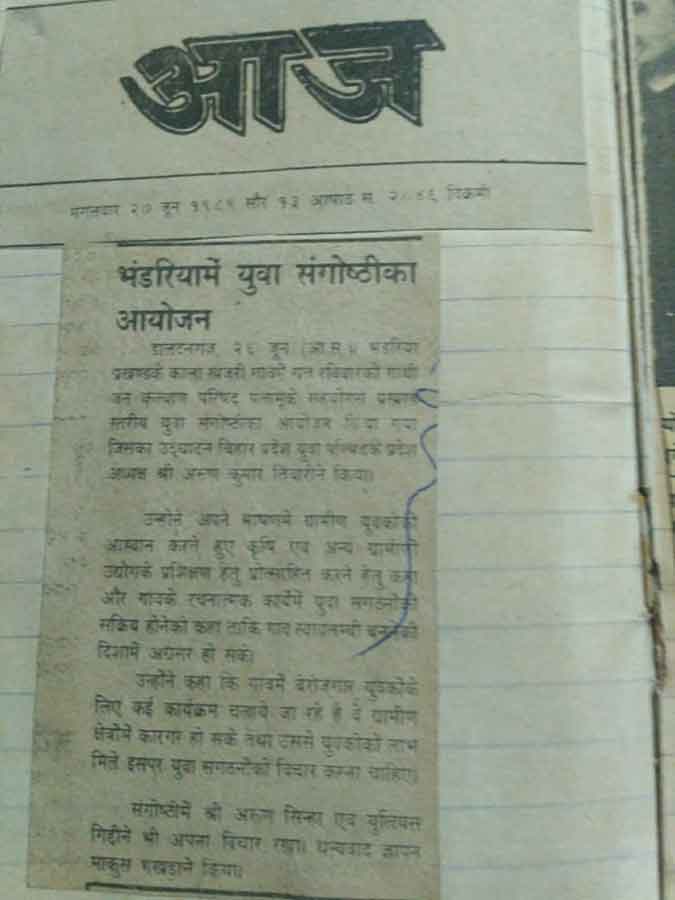 आज
मंगलवार २७ जून १९८९ सौर १३ आषाढ़ स. २०४६ विक्रमी
भंडरियामें युवा संगोष्ठीका
आयोजन
डालटनगंज, २६ जून (आ.स.)। भंडरिया
प्रखण्डके काला खजरी गांवमें गत रविवारको गांधी
वन कल्याण परिषद पलामूके सहयोगसे प्रखण्ड
स्तरीय युवा संगोष्ठीका आयोजन किया गया
जिसका उद्घाटन बिहार प्रदेश युवा परिषदके प्रदेश
अध्यक्ष श्री अरुण कुमार तिवारीने किया।
उन्होंने अपने भाषणमें ग्रामीण युवकोंको
आह्वान करते हुए कृषि एवं अन्य ग्रामीण
उद्योगके प्रशिक्षण हेतु प्रोत्साहित करने हेतु कहा
और गांवके रचनात्मक कार्यमें युवा संगठनोंको
सक्रिय होनेको कहा ताकि गांव स्वावलम्बी बननेकी
दिशामें अग्रसर हो सके।
उन्होंने कहा कि गांवमें बेरोजगार युवकोंके
लिए कई कार्यक्रम चलाये जा रहे हैं वे ग्रामीण
क्षेत्रोंमें कारगर हो सके तथा उससे युवकोंको लाभ
मिले इसपर युवा संगठनोंको विचार करना चाहिए।
संगोष्ठीमें श्री अरुण सिन्हा एवं युलियस
गिद्दीने भी अपना विचार रखा। धन्यवाद ज्ञापन
माकुस किया।